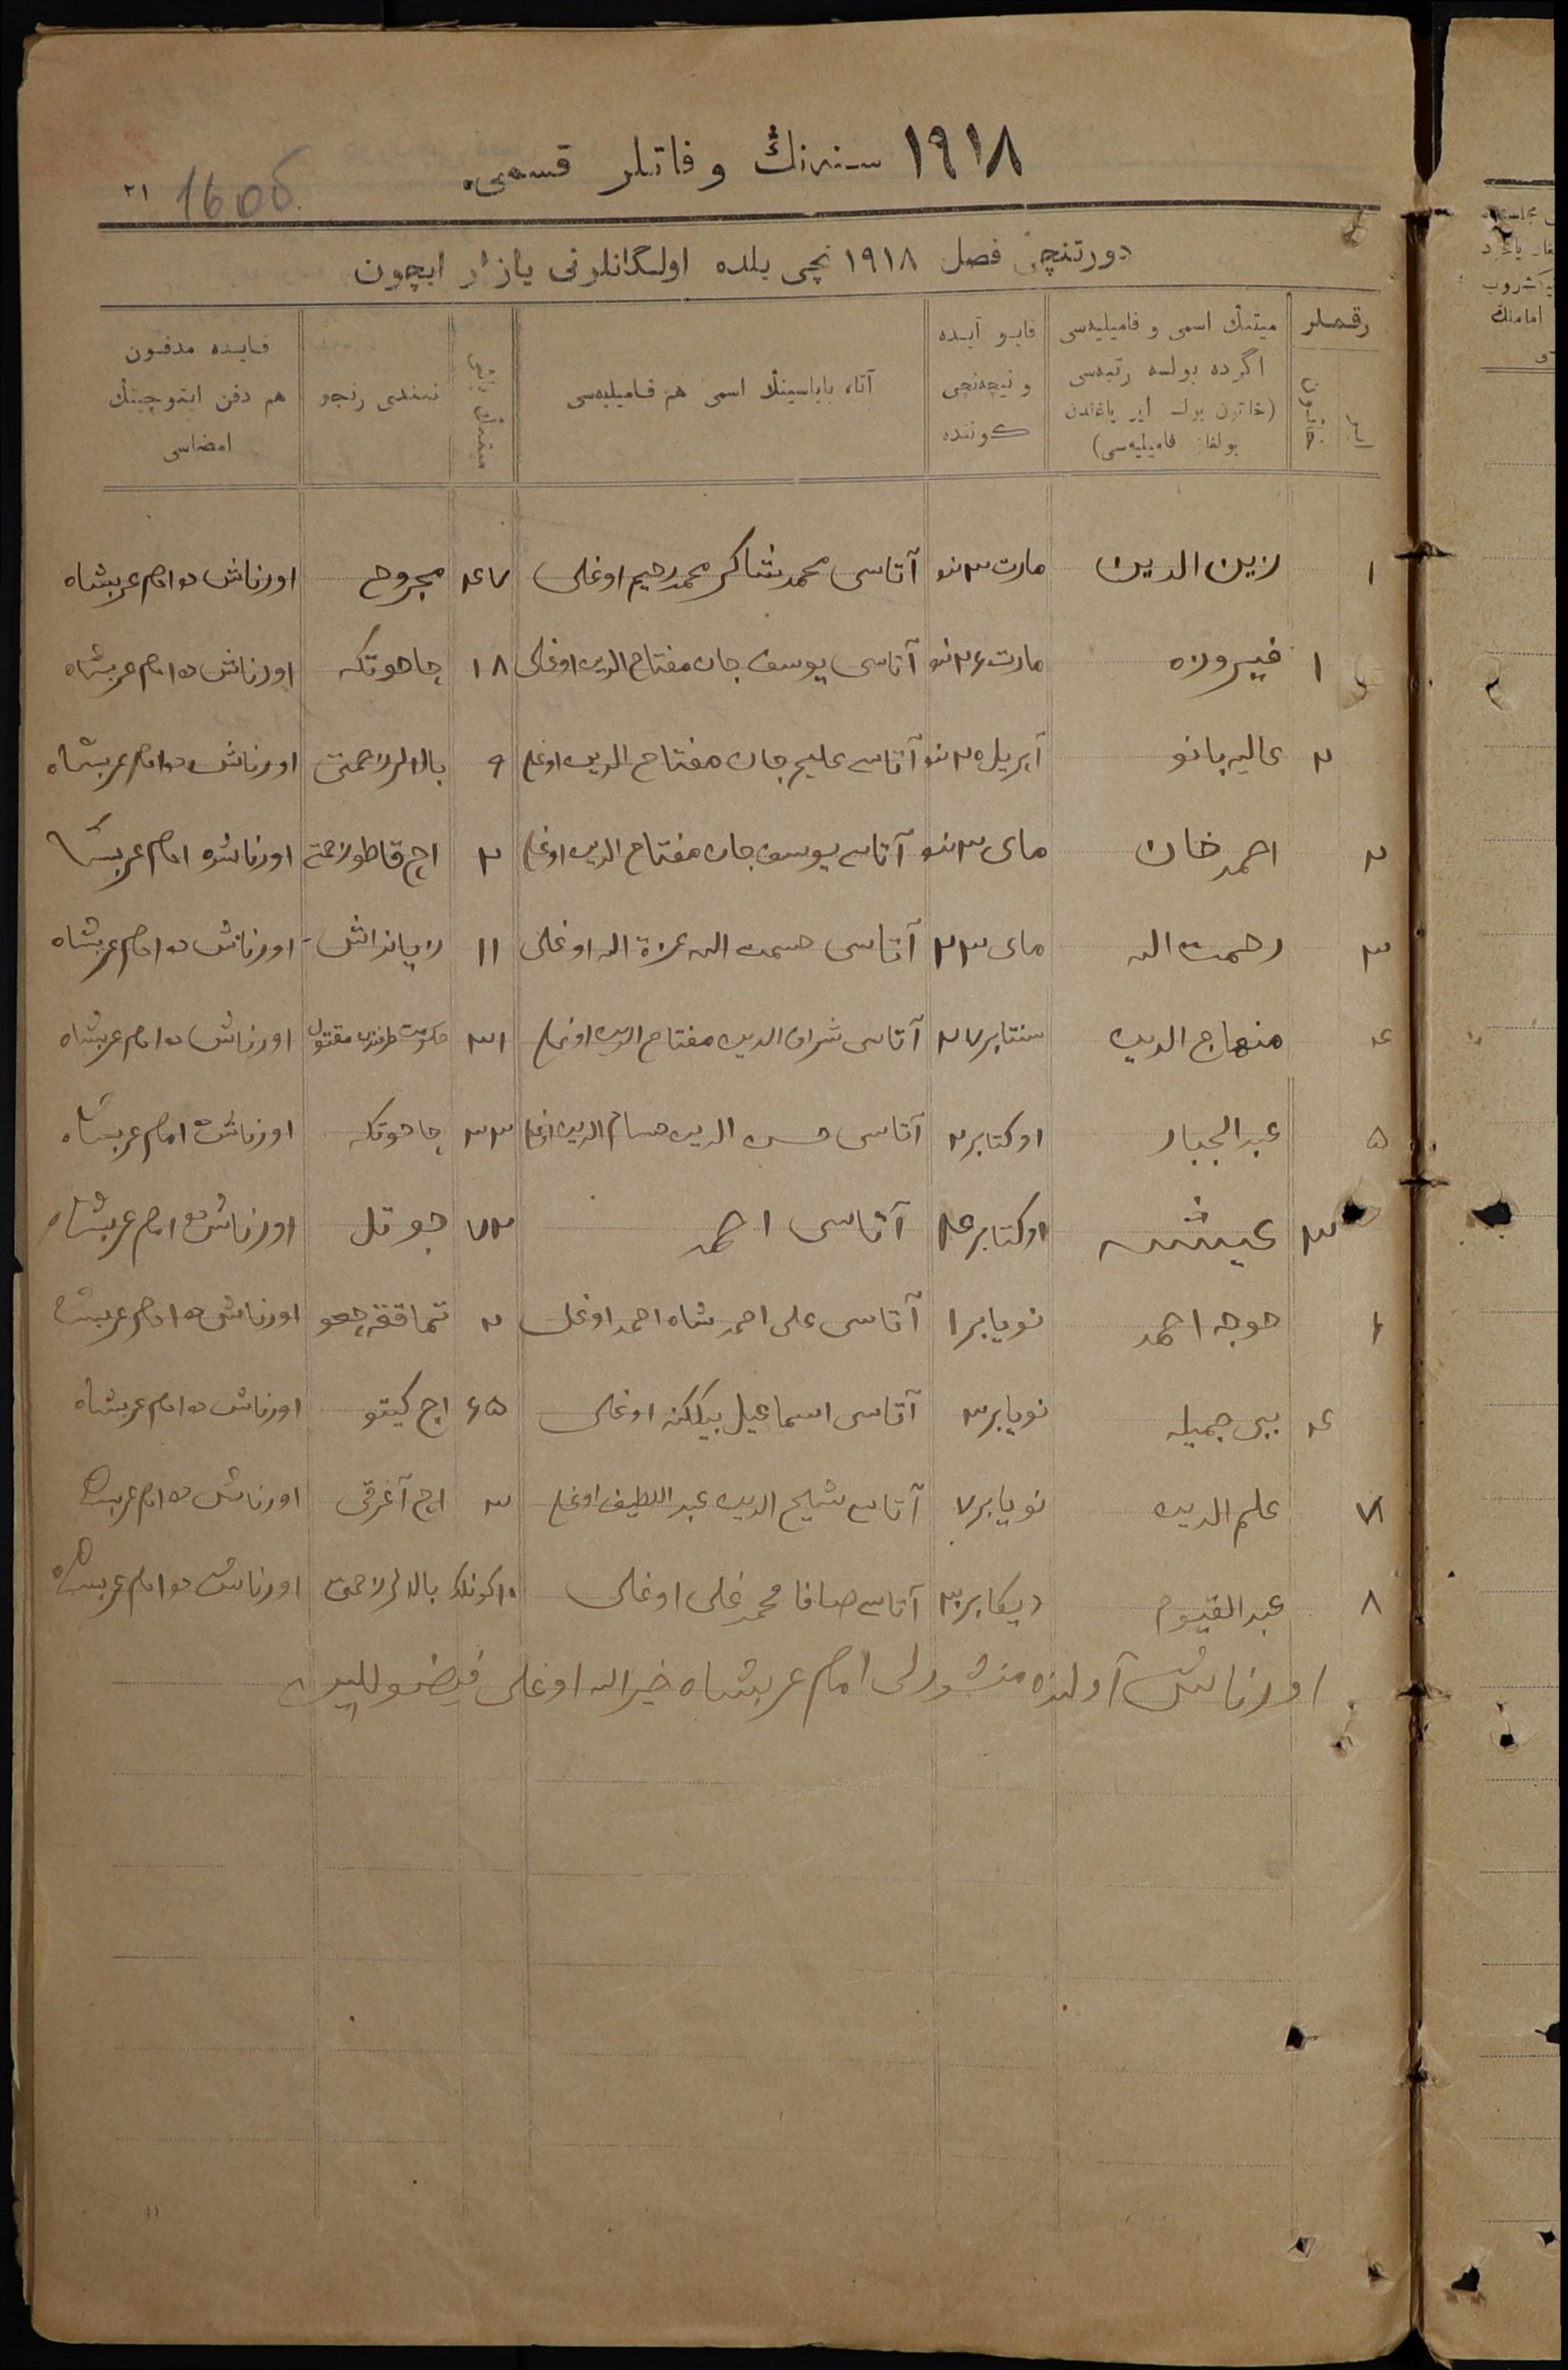 ١٩١٨ سنه‌نڭ وفاتلر قسمى
٢١ 160б
دورتنچى فصل ١٩١٨ نچى يلده اولگانلرنى يازار ايچون
رقملر
ميتنڭ اسمى و فاميليه‌سى اگرده بولسه رتبه‌سى (خاتون بولسه اير ياغندن بولغان فاميليه‌سى)
قايو آيده و نيچه‌نچى كوننده
آتا، باباسينڭ اسمى هم فاميليه‌سى
ميتنڭ ياشى
نيندى رنجو
قايده مدفون هم دفن ايتوچينڭ امضاسى
١ زين الدين مارت ٣ آتاسى محمدشاكر محمدرحيم اوغلى ٤٧ مجروح اورناش ده امام عربشاه
١ فيروزه مارت ٢٦ آتاسى يوسف جان مفتاح الدين اوغلى ١٨ چاحوتكه اورناش ده امام عربشاه
٢ عاليه بانو آپريل ٢٥ آتاسى عليم جان مفتاح الدين اوغلى ٩ بالالر زحمتى اورناش ده امام عربشاه
٢ احمد خان ماى ٣ آتاسى يوسف جان مفتاح الدين اوغلى ٢ اچ قاطو زحمتى اورناش ده امام عربشاه
٣ رحمت الله ماى ٢٣ آتاسى عصمت الله عزة الله اوغلى ١١ اورناش ده امام عربشاه
٤ منهاج الدين سنتابر ٢٧ آتاسى شراف الدين مفتاح الدين اوغلى ٣١ حكومت طرفندن مقتول اورناش ده امام عربشاه
٥ عبد الجبار اوكتابر ٢ آتاسى حسن الدين حسام الدين اوغلى ٣٣ چاحوتكه اورناش ده امام عربشاه
٣ عيشه اوكتابر ٤ آتاسى احمد ٧٣ جوتل اورناش ده امام عربشاه
٦ خوجه احمد نويابر ١ آتاسى على احمد شاه احمد اوغلى ٢ اورناش ده امام عربشاه
٤ بيبى جميله نويابر ٣ آتاسى اسماعيل بيككنه اوغلى ٦٥ اچ كيتو اورناش ده امام عربشاه
٧ علم الدين نويابر ٧ آتاسى شيخ الدين عبد اللطيف اوغلى ٣ اچ آغرقى اورناش ده امام عربشاه
٨ عبد القيوم ديكابر ٣ آتاسى صافا محمد غلى اوغلى ١٠ كونلك بالالر زحمتى اورناش ده امام عربشاه
اورناش آولنده منشورلى امام عربشاه خيرالله اوغلى فيضوللين